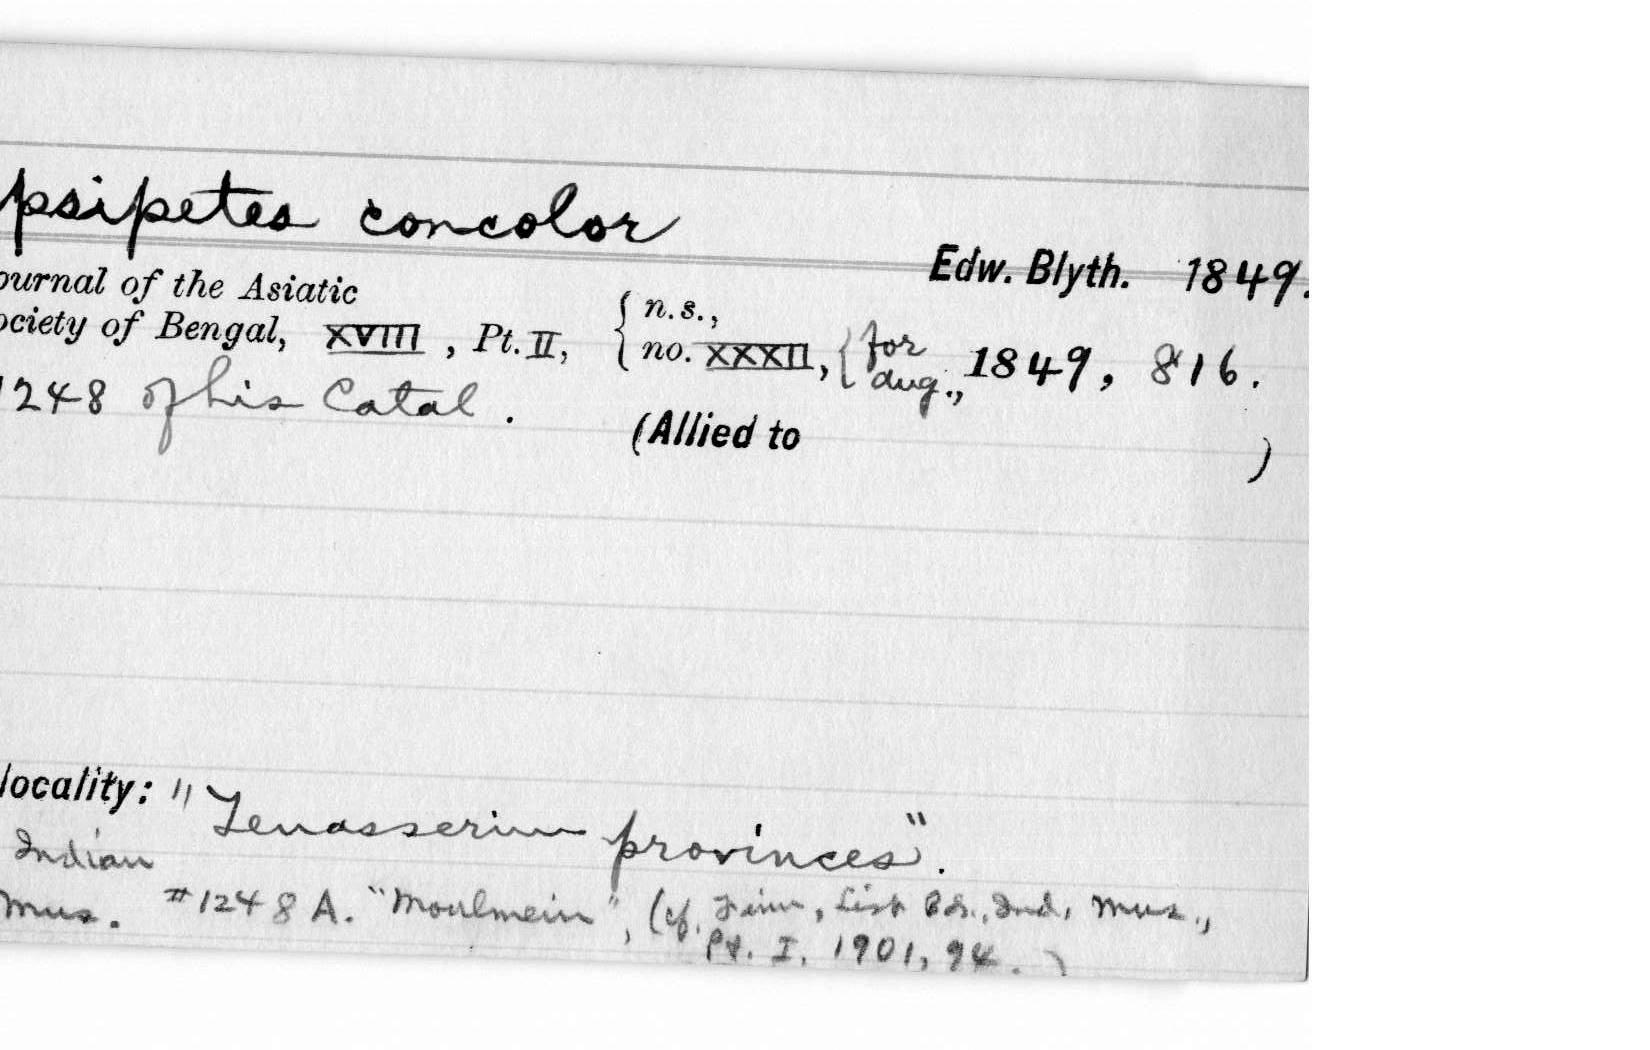 psipetes concolor
Edw. Blyth. 1849.
ournal of the Asiatic
ociety of Bengal, XVIII, Pt. II, { n.s., no. XXXII, { for Aug., 1849, 816.
1248 of his Catal.
(Allied to )
locality: "Tenasserim provinces".
Indian
Mus. #1248 A. "Moulmein", (cf. Finn, List Bds., Ind. Mus.,
Pt. I, 1901, 94.)